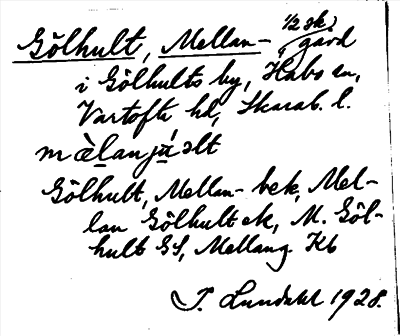 Gölhult, Mellan- 1/2 sk. gård
i Gölhults by, Habo sn,
Vartofta hd, Skarab. l.
mèlanjú əlt
Gölhult, Mellan- bek, Mel-
lan Gölhult ek, M. Göl-
hult GS, Mellang. Kb
J. Lundahl 1928.